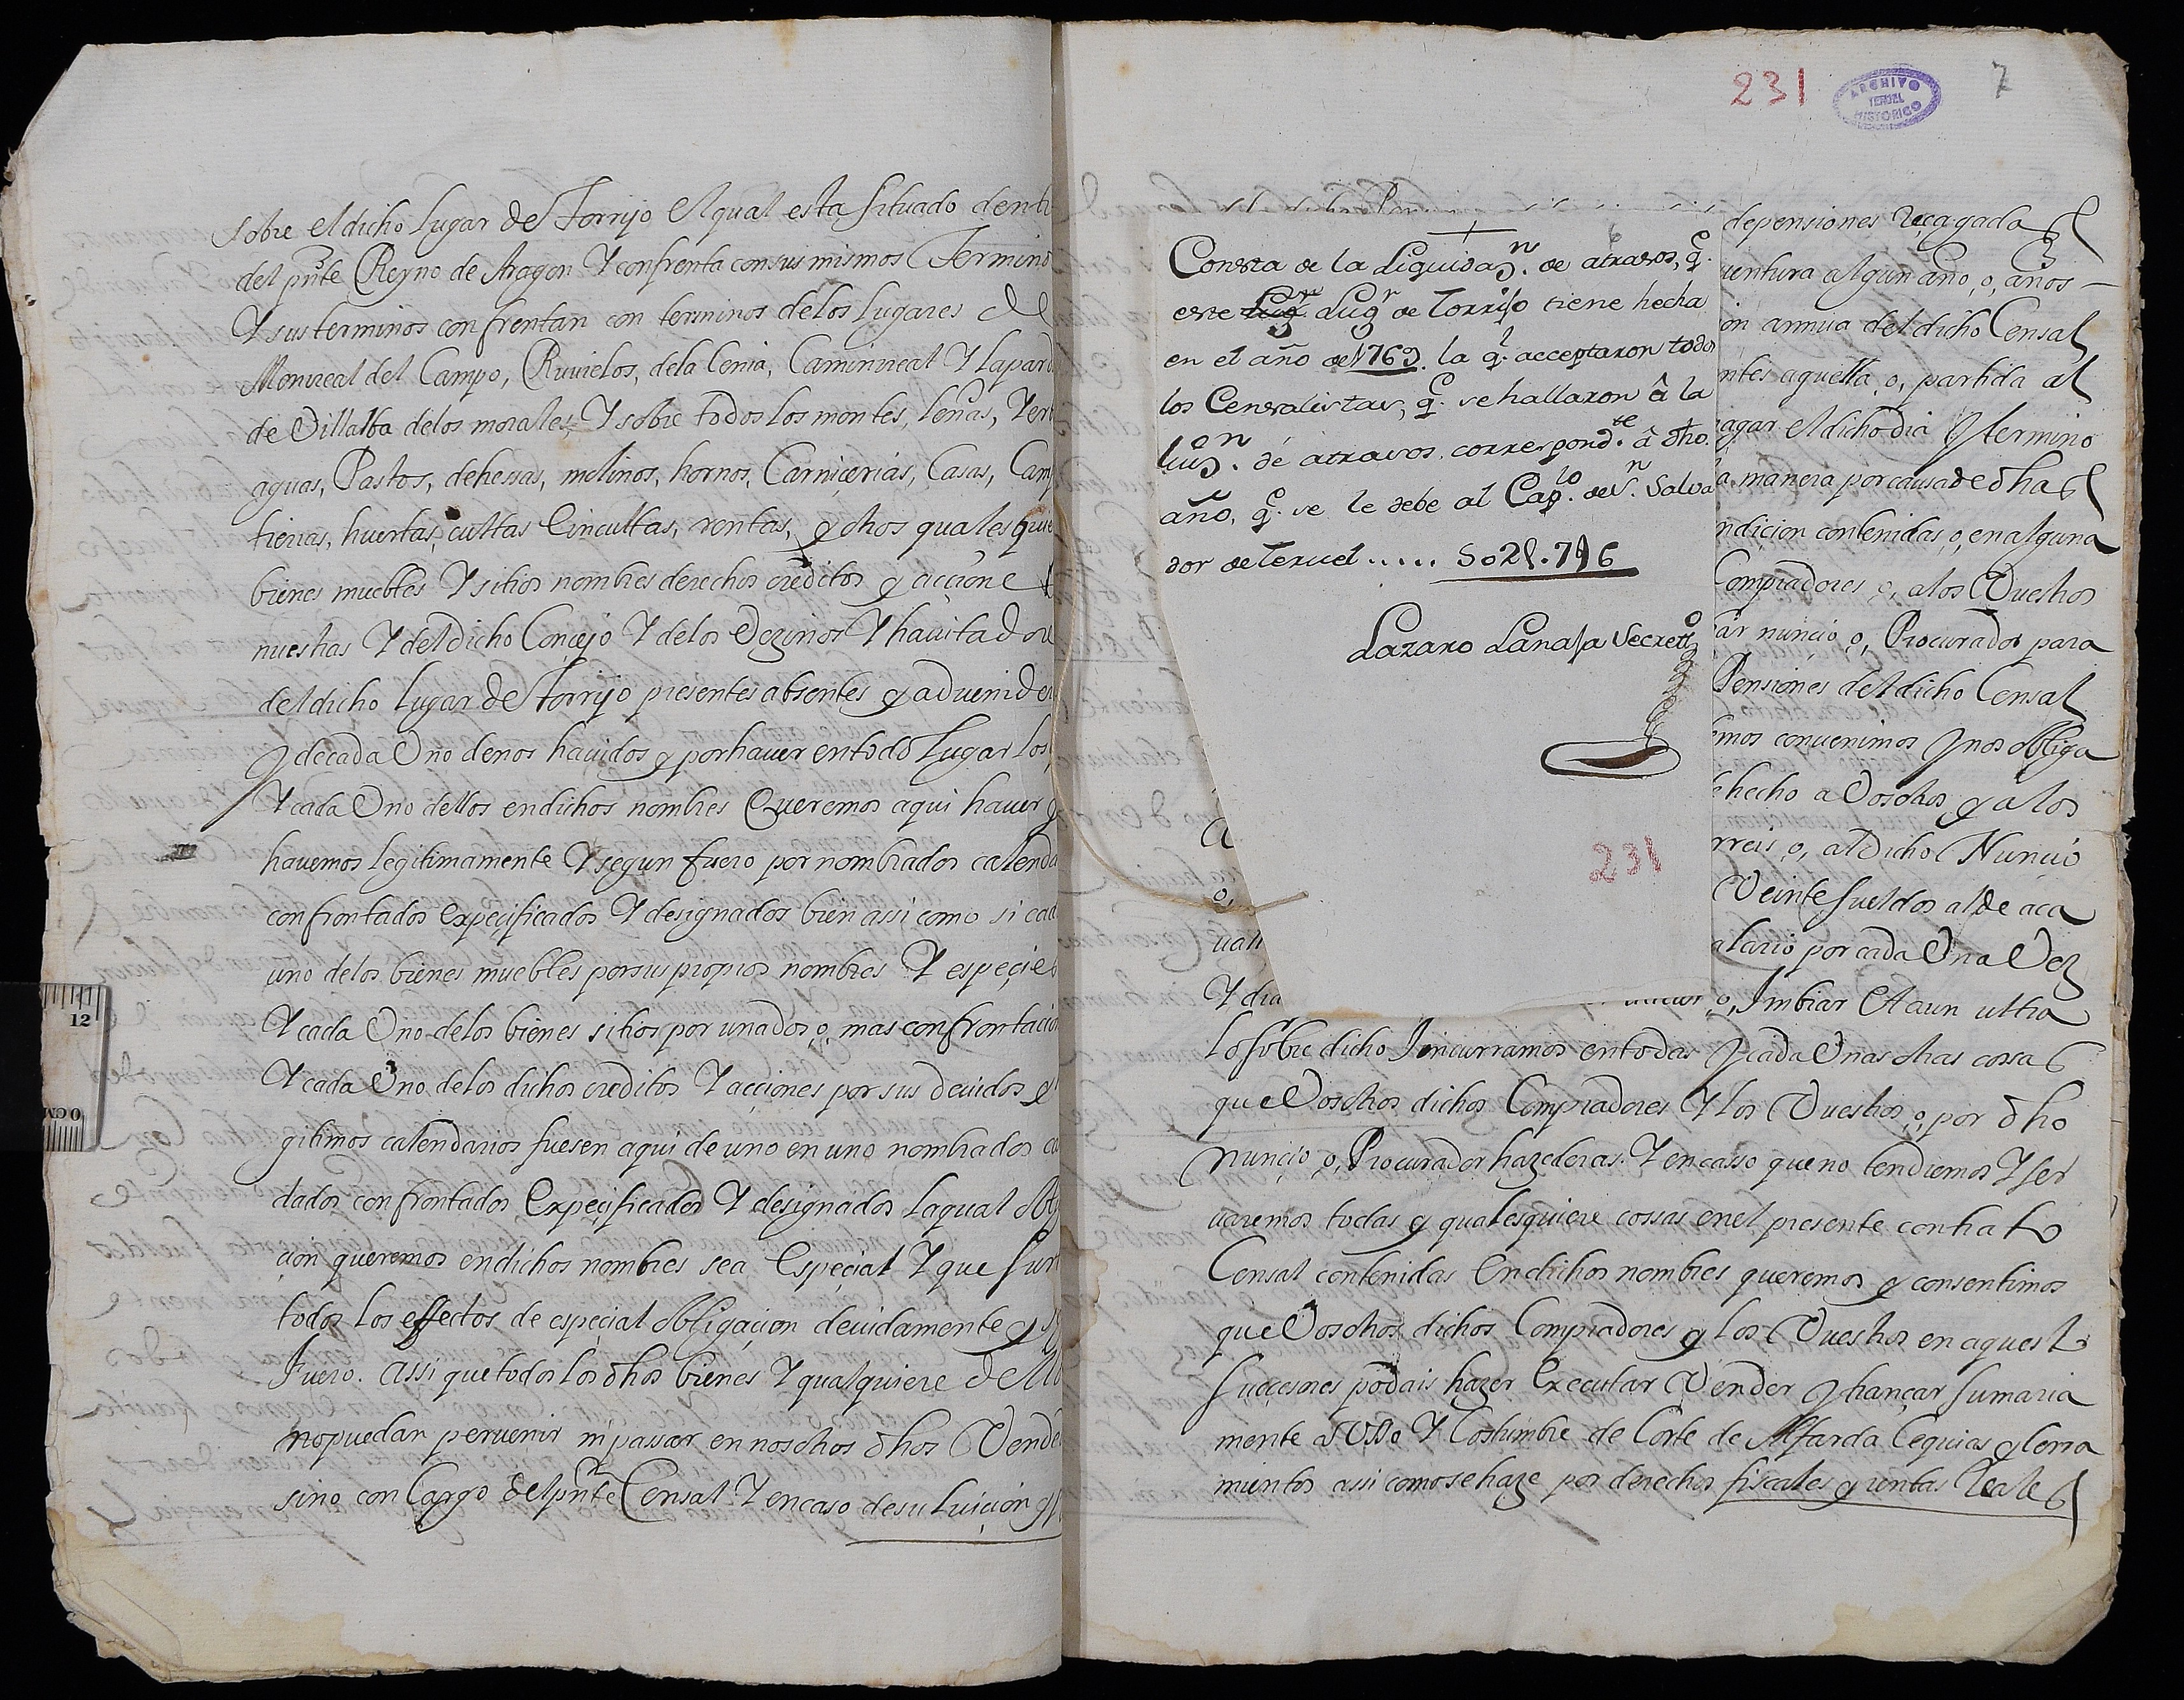 sobre el dicho lugar de Torrijo el qual esta situado dent
del pnte Reyno de Aragon Y confrenta con sus mismos Termino
Y sus terminos confrentan con terminos de los lugares de
Monrreal del Campo, Ruuielos, de la Cenia, Caminrreal Y la pard
de Villalba de los morales, Y sobre todos los montes, leñas, Yer
aguas, Pastos, dehessas, molinos, hornos, Carniçerias, Casas, Camp
tierras, huertas, cultas E incultas, rentas, y otros qualesquie
bienes muebles Y sitios nombres derechos creditos y accione
nuestras Y del dicho Conçejo Y de los Vezinos Y hauitadore
del dicho lugar de Torrijo presentes absentes y aduenider
Y de cada Vno de nos hauidos y por hauer en todo lugar los
Y cada Vno dellos en dichos nombres Queremos aqui hauer y
hauemos legitimamente Y segun fuero por nombrados calenda
confrontados expeçificados Y designados bien assi como si cad
uno de los bienes muebles por sus propios nombres Y espeçies
Y cada Vno de los bienes sitios por una dos o, mas confrontacio
Y cada Vno de los dichos creditos Y acçiones por sus deuidos y
gitimos calendarios fuesen aqui de uno en uno nombrados ca
dados confrontados Expeçificados Y designados la qual obli
çion queremos en dichos nombres sea Espeçial Y que sur
todos los effectos de espeçial obligaçion deuidamente y
Fuero. assi que todos los dhos bienes Y qualquiere dell
no puedan peruenir ni passar en nosotros dhos Vende
sino con Cargo del pnte Censal Y en caso de su luiçion y
231
ARCHIVO
TERUEL
HISTORICO
7
Consta de la Liquidaz.n de atrasos, q.e
este Lug.r Lug.r de Torrijo tiene hecha
en el año de 1769. la q.l acceptaron todos
los Censalistas, q.e se hallaron â la
luiz.on de atrasos correspond.te â dho
año, q.e se le debe al Cap.lo de S.n Salva
dor de Teruel.....
Lazaro Lanaja Secret.o
231
de pensiones reçagadas
uentura algun año, o, años
on annua del dicho Censal
ntes aquella, o, partida al
agar el dicho dia Y termino
a manera por causa de dhas
ndiçion contenidas, o, en alguna
Compradores, o, a los Vuestros
ar nunçio, o, Procurador para
Pensiones del dicho Censal
emos conuenimos Y nos obliga
hecho a Vosotros y a los
rreis, o, al dicho Nunçio
Veinte sueldos al de aca
alario por cada Vna Vez
Y dia
o, Imbiar Et aun ultra
lo sobre dicho Y incurramos en todas Y cada Vnas otras cossas
que Vosotros dichos Compradores Y los Vuestros, o, por dho
nunçio, o, Procurador hazederas. Y en casso que no tendremos Y ser
uaremos todas y qualesquiere cossas en el presente contrato
Censal contenidas En dichos nombres queremos y consentimos
que Vosotros dichos Compradores y los Vuestros en aquest
suçcesores podais hazer Executar Vender Y trançar sumaria
mente a Vsso Y Costumbre de Corte de Alfarda Cequias y lerra
mientos assi como se haze por derechos fiscales y rentas Reales